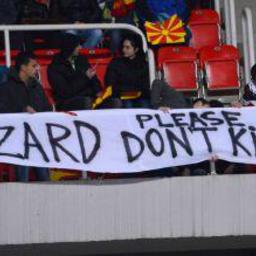 ZARD PLEASE
DON'T KI